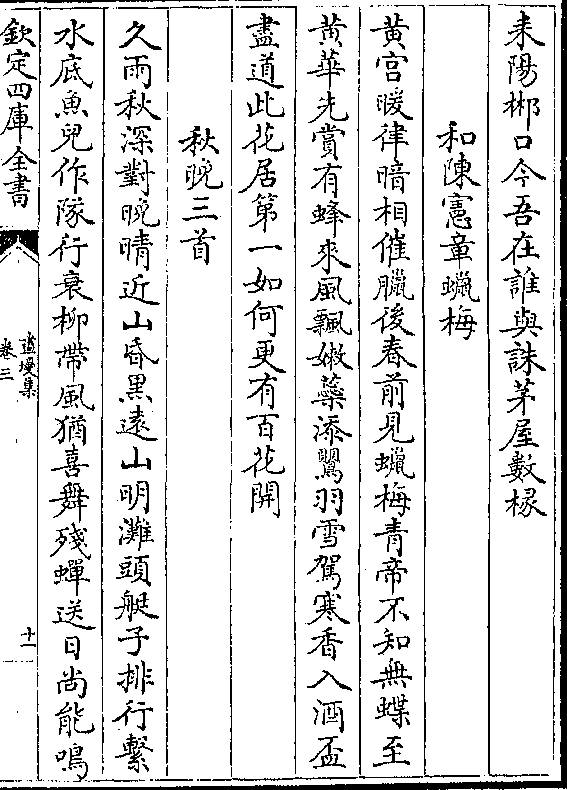 耒陽郴口今吾在誰與誅茅屋數椽
和陳憲章蠟梅
黄宫暖律暗相催臘後春前見蠟梅青帝不知無蝶至
黄華先賞有蜂來風飄嫩蘂添鶯羽雪駕寒香入酒盃
盡道此花居第一如何更有百花開
秋晚三首
久雨秋深對晚晴近山昏黑逺山明灘頭艇子排行繫
水底魚兒作隊行衰柳帶風猶喜舞殘蟬送日尚能鳴
欽定四庫全書
盧溪集
卷三
十一